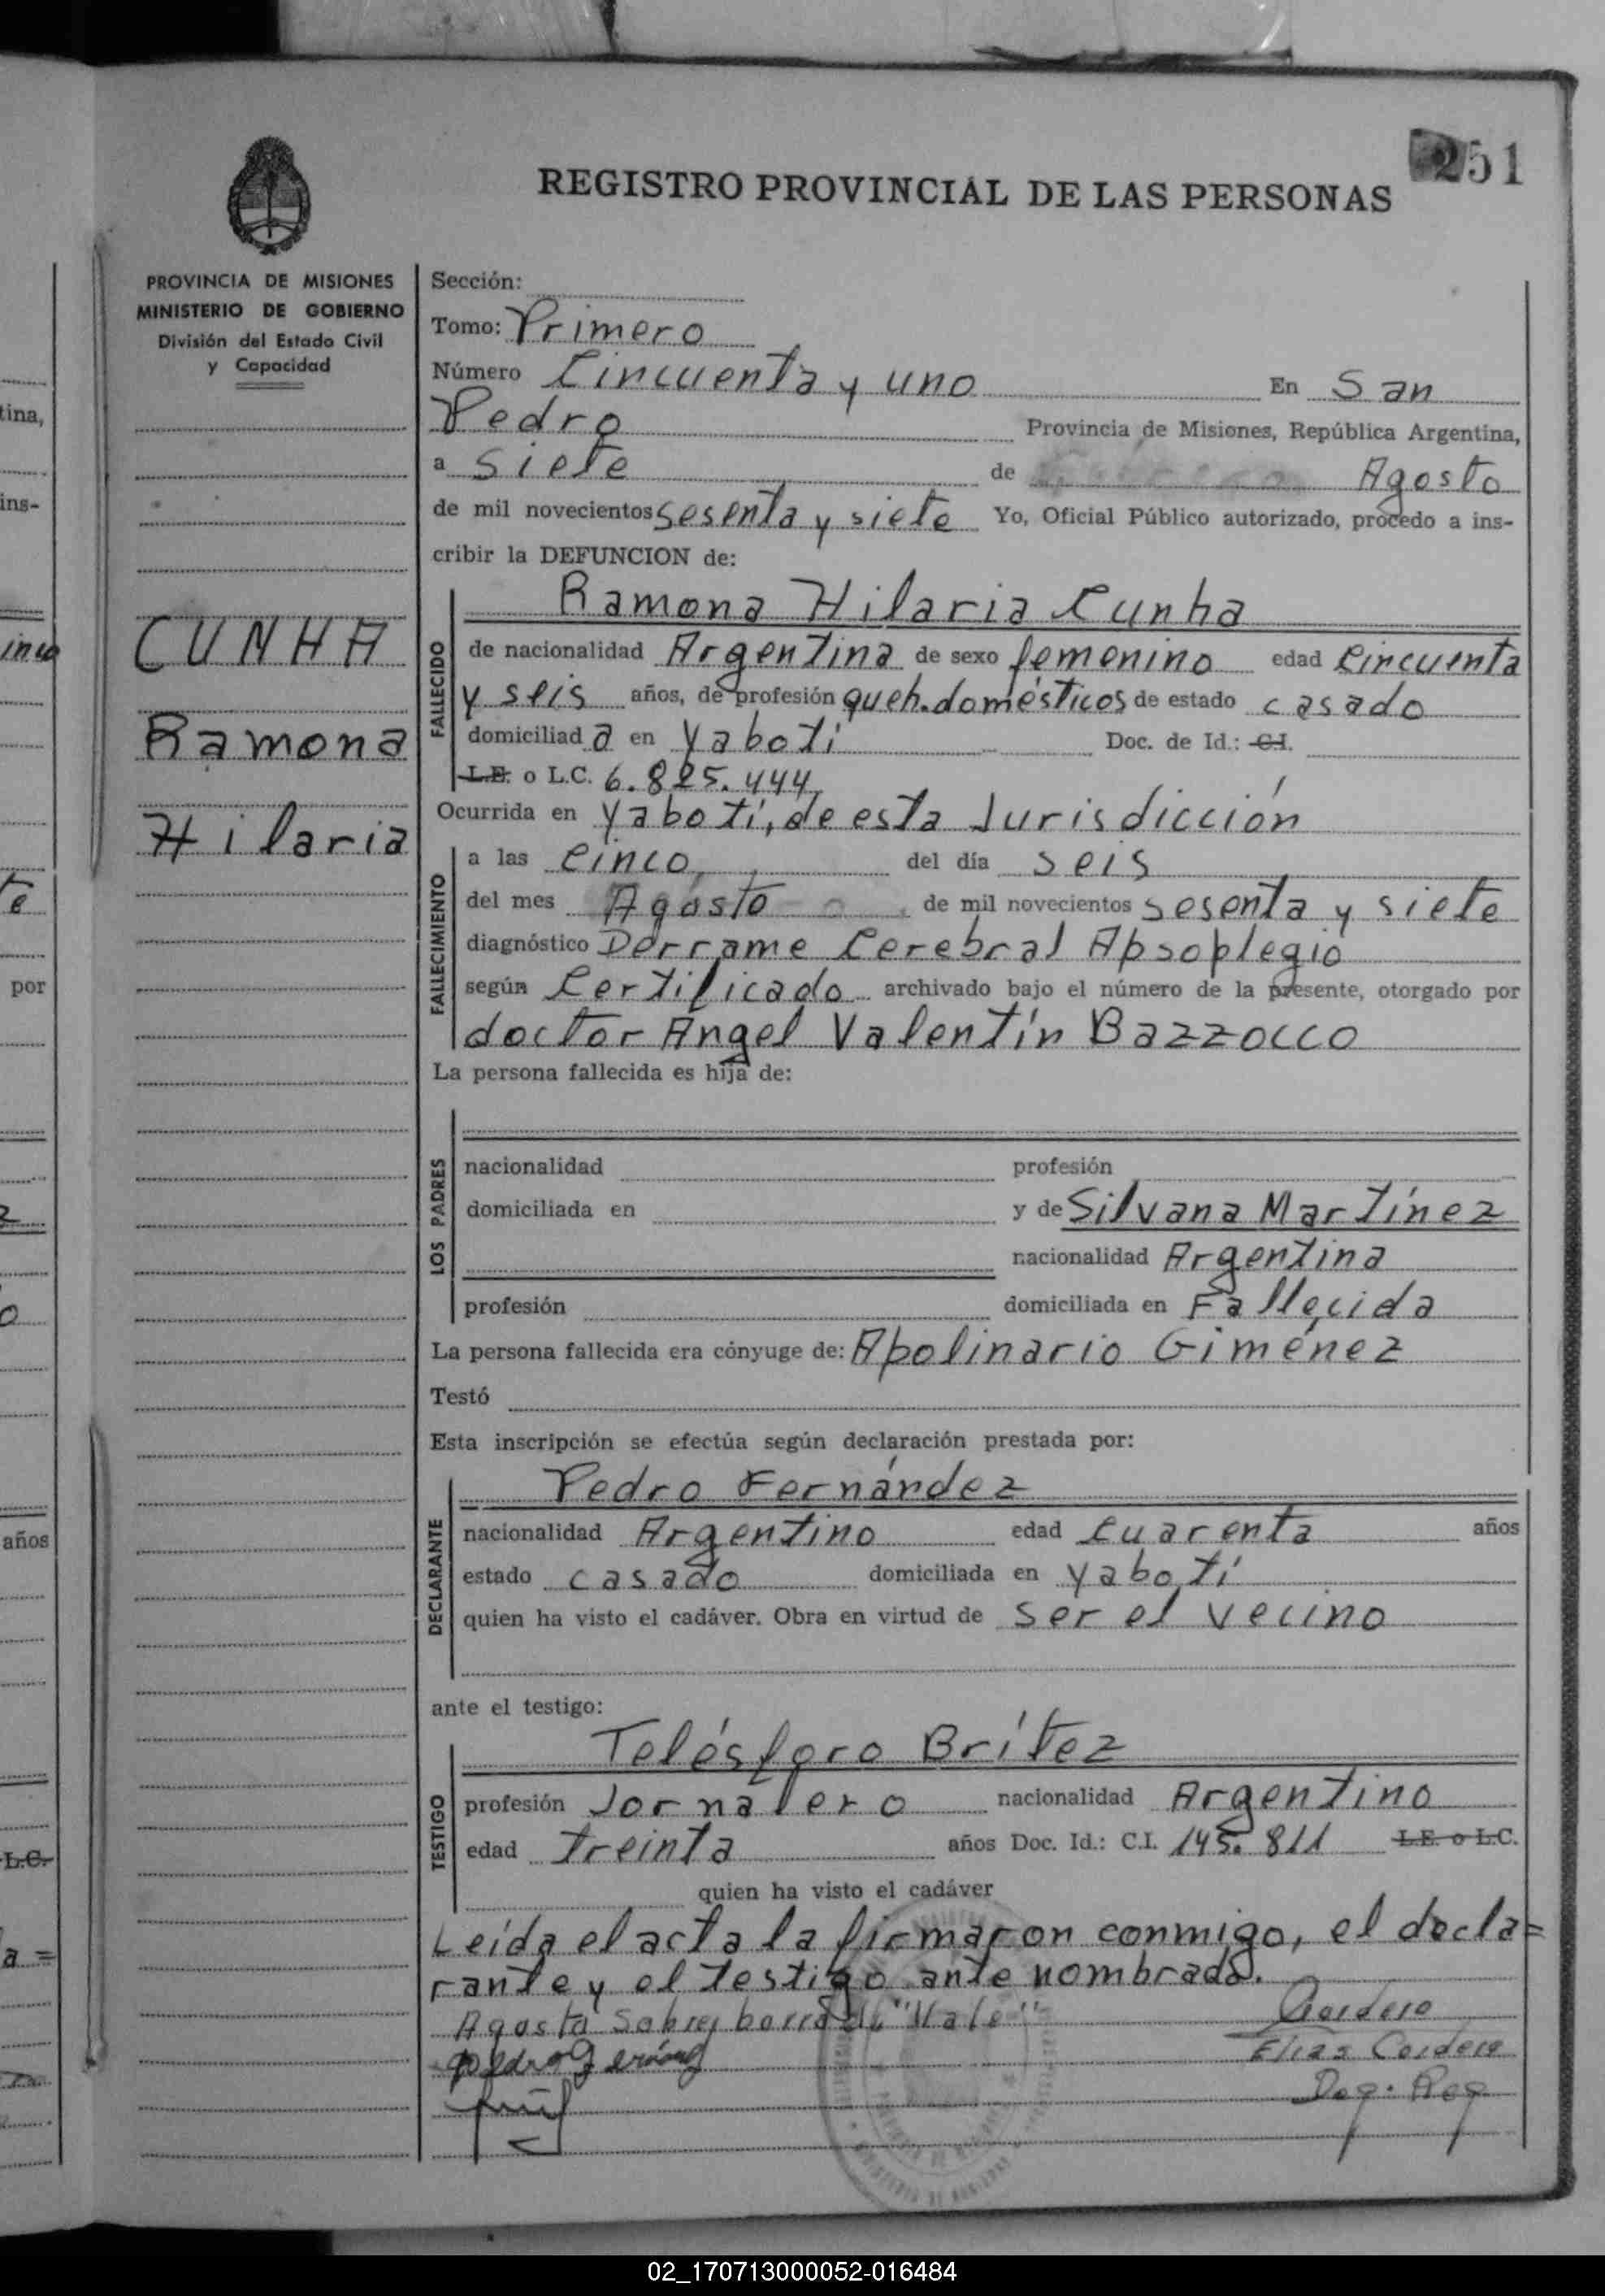 251
REGISTRO PROVINCIAL DE LAS PERSONAS
PROVINCIA DE MISIONES
MINISTERIO DE GOBIERNO
División del Estado Civil
y Capacidad
CUNHA
Ramona
Hilaria
Sección:
Tomo: Primero
Número Cincuenta y uno En San
Pedro Provincia de Misiones, República Argentina,
a siete de Agosto
de mil novecientos sesenta y siete Yo, Oficial Público autorizado, procedo a ins-
cribir la DEFUNCION de:
FALLECIDO
Ramona Hilaria Cunha
de nacionalidad Argentina de sexo femenino edad Cincuenta
y seis años, de profesión queh. domésticos de estado casado
domiciliad a en Yabotí Doc. de Id.: C.I.
L.E. o L.C. 6.825.444
Ocurrida en Yabotí, de esta Jurisdicción
FALLECIMIENTO
a las cinco, del día seis
del mes Agosto de mil novecientos sesenta y siete
diagnóstico Derrame Cerebral Apsoplegio
según Certificado archivado bajo el número de la presente, otorgado por
doctor Angel Valentín Bazzocco
La persona fallecida es hija de:
LOS PADRES
nacionalidad profesión
domiciliada en y de Silvana Martínez
nacionalidad Argentina
profesión domiciliada en Fallecida
La persona fallecida era cónyuge de: Apolinario Giménez
Testó
Esta inscripción se efectúa según declaración prestada por:
DECLARANTE
Pedro Fernández
nacionalidad Argentino edad Cuarenta años
estado casado domiciliada en Yabotí
quien ha visto el cadáver. Obra en virtud de ser el vecino
ante el testigo:
TESTIGO
Telésforo Brítez
profesión Jornalero nacionalidad Argentino
edad treinta años Doc. Id.: C.I. 145.811 L.E. o L.C.
quien ha visto el cadáver
Leída el acta la firmaron conmigo, el decla=
rante y el testigo ante nombrado.
Agosto Sobre borrado "Vale"
Cordero
Elías Cordero
tina,
ins-
por
años
L.C.
a =
02_170713000052-016484